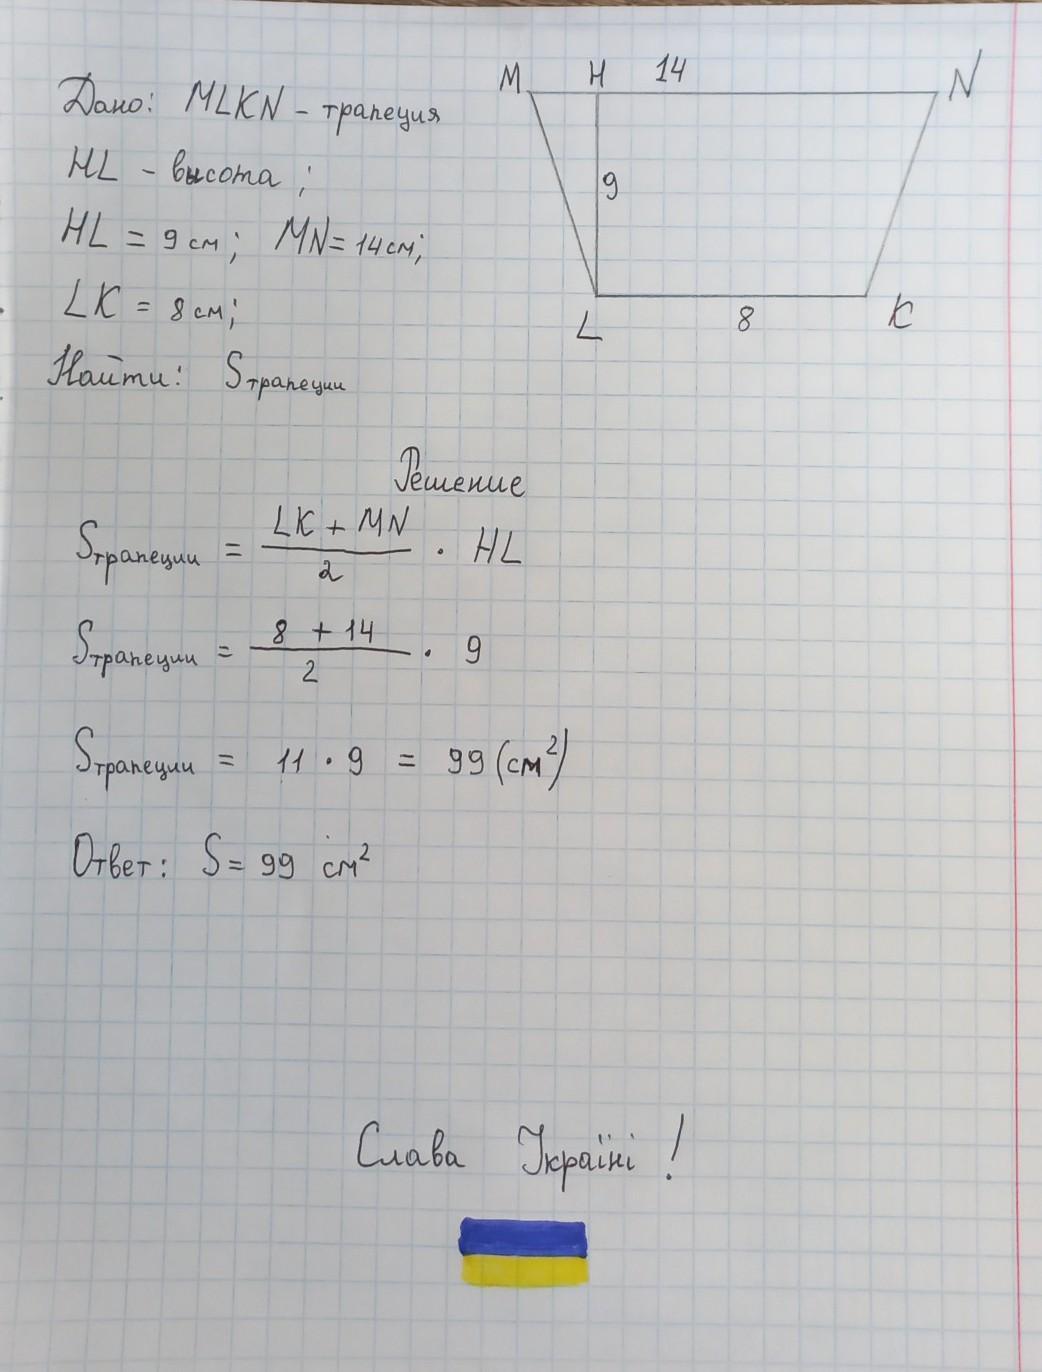 Дано: MLKN - трапеция
HL - высота ;
HL = 9 см; MN = 14 см;
LK = 8 см;
Найти: Sтрапеции
M H 14 N
9
L 8 K
Решение
Sтрапеции = \frac{LK + MN}{2} · HL
Sтрапеции = \frac{8 + 14}{2} · 9
Sтрапеции = 11 · 9 = 99 (см²)
Ответ: S = 99 см²
Слава Україні !